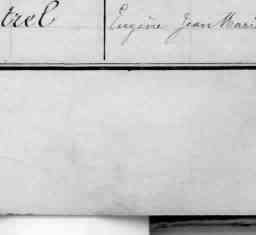 trel Eugène Jean Mari